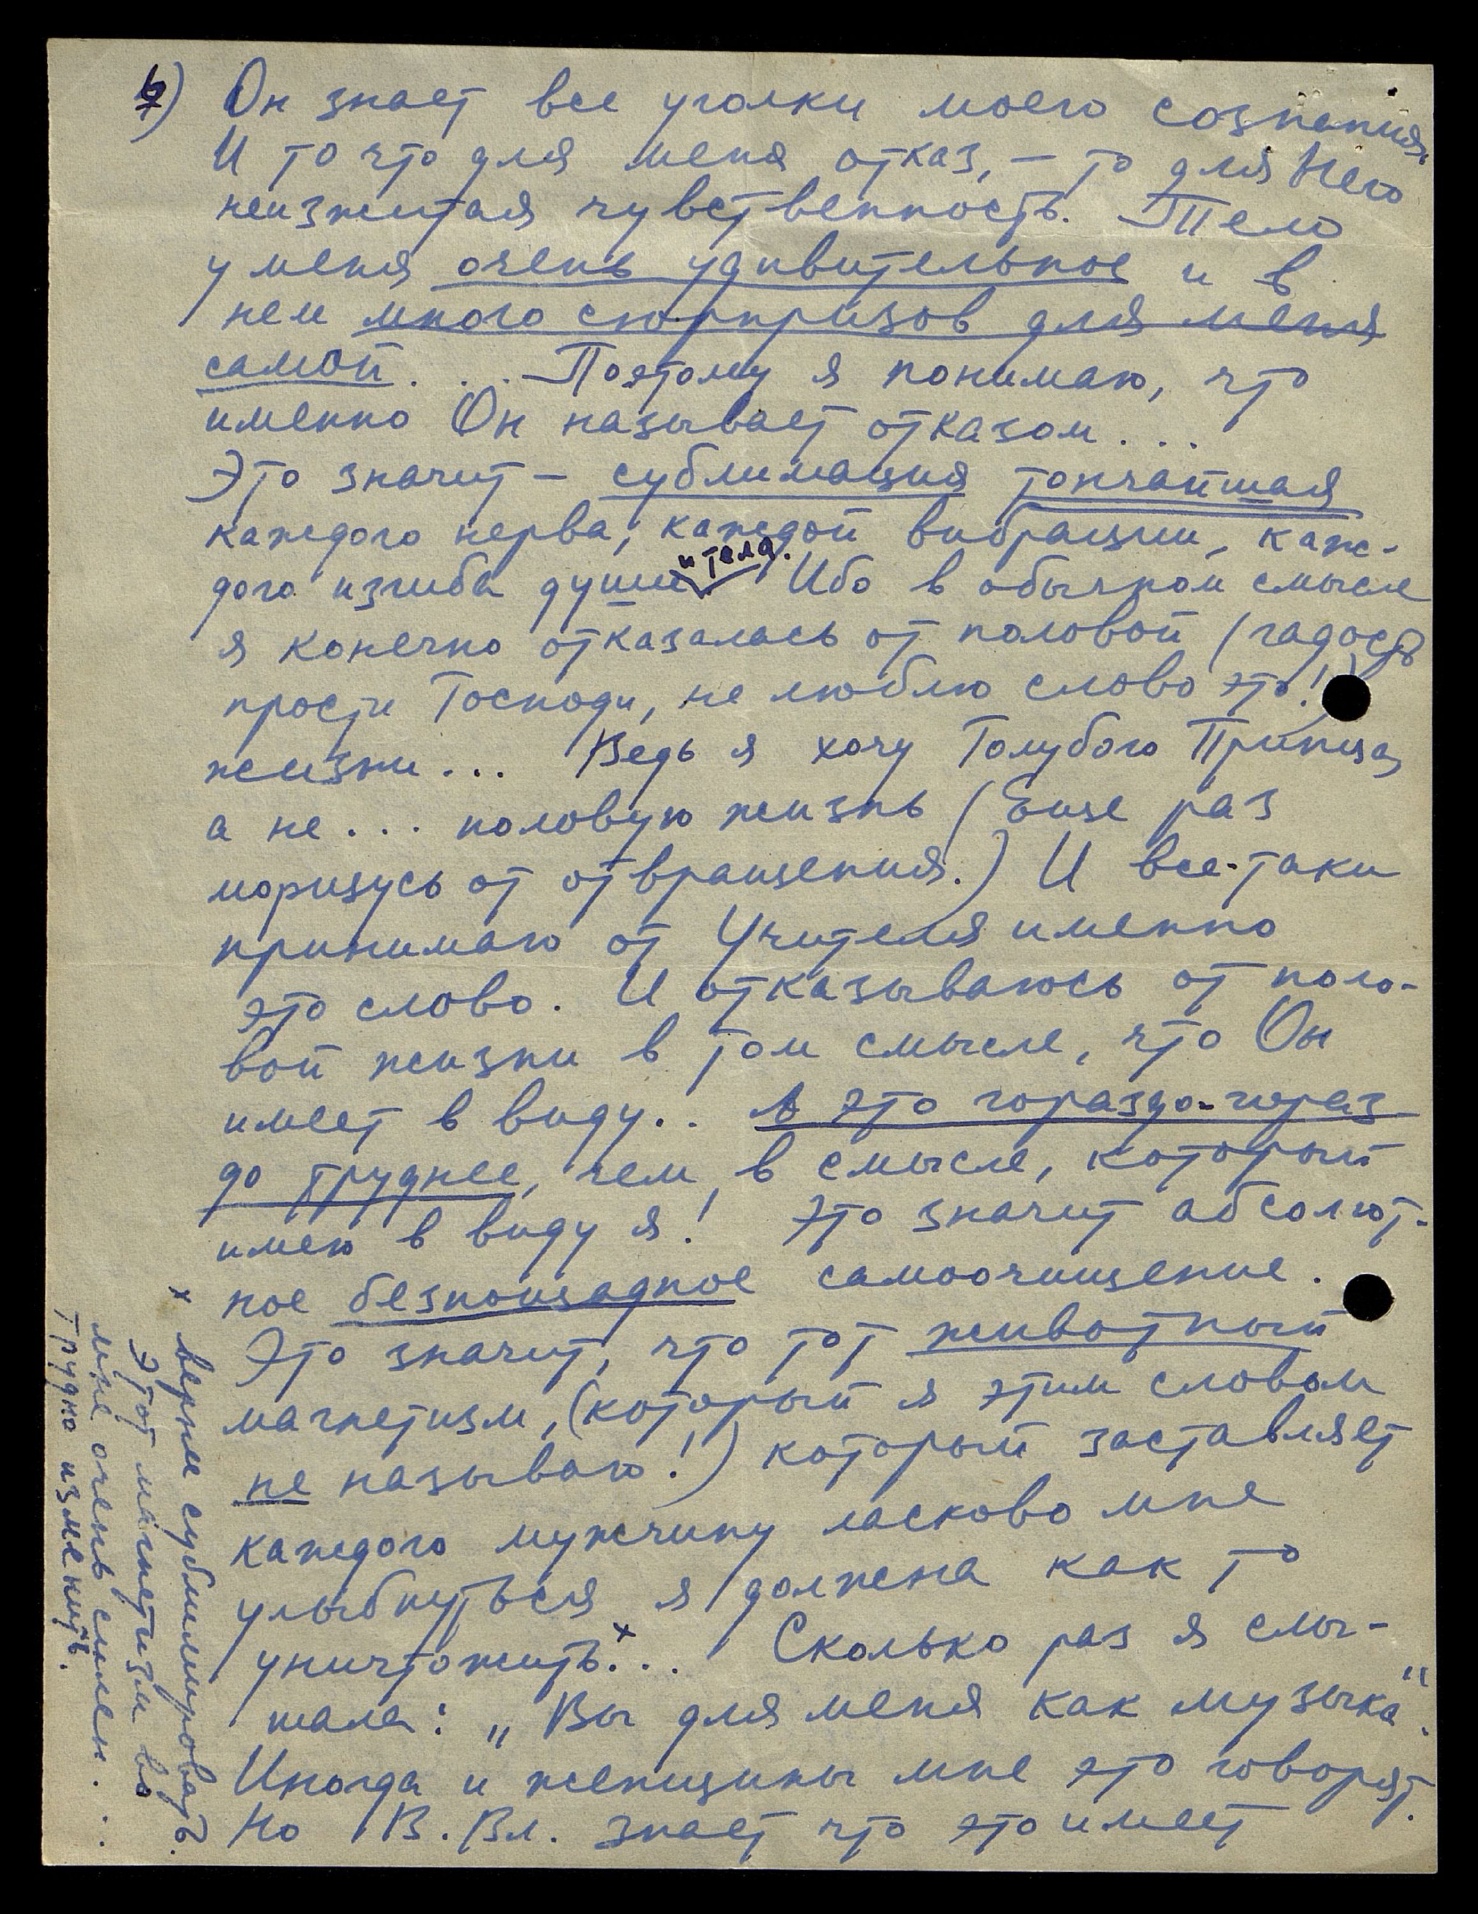 6) Он знает все уголки моего сознания.
И то что для меня отказ, – то для Него
неизжитая чувственность. Тело
у меня очень удивительное и в
нем много сюрпризов для меня
самой... Поэтому я понимаю, что
именно Он называет отказом...
Это значит – сублимация тончайшая
каждого нерва, каждой вибрации, каж-
дого изгиба души и тела. Ибо в обычном смысле
я конечно отказалась от половой (гадость
прости Господи, не люблю слово это!)
жизни... Ведь я хочу Голубого Принца,
а не... половую жизнь (Еще раз
морщусь от отвращения.) И все-таки
принимаю от Учителя именно
это слово. И отказываюсь от поло-
вой жизни в том смысле, что Он
имеет в виду.. А это гораздо-гораз
до труднее, чем в смысле, который
имею в виду я! Это значит абсолют-
ное безпощадное самоочищение.
Это значит, что тот животный
магнетизм, (который я этим словом
не называю!) который заставляет
каждого мужчину ласково мне
улыбнуться я должена как то
уничтожить.x.. Сколько раз я слы-
шала: „Вы для меня как музыка".
Иногда и женщины мне это говорят.
Но В.Вл. знает что это имеет
x вернее сублимировать.
Этот магнетизм во
мне очень силен...
трудно изменить.